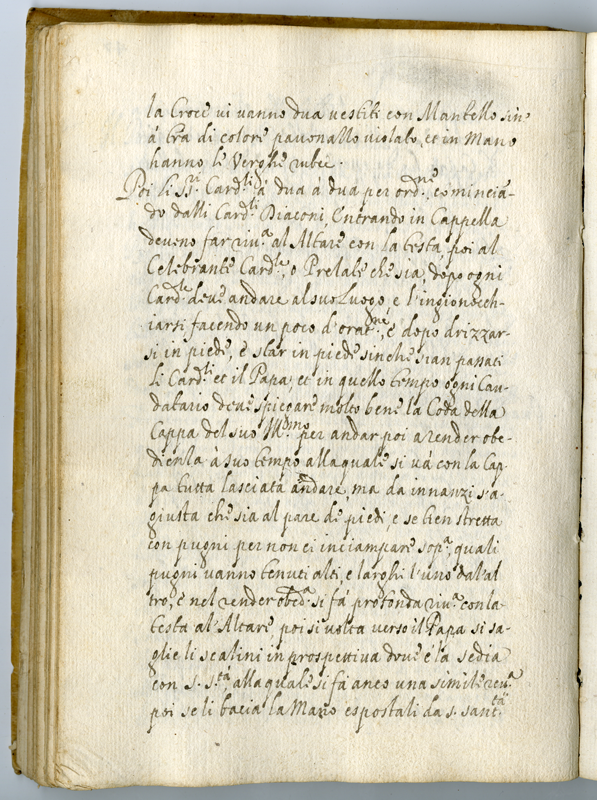 la Croce vi vanno dua vestiti con Mantello sin'
á tra di colore pauonallo uiolato, et in Mano
hanno le Verghe rubee.
Poi li SS.ri Card.li á dua á dua per ord.ne, cominciá-
do dalli Card.li Diaconi, l'entrando in Cappella
deueno far riu.a al Altare con la testa, poi al
Celebrante Card.le, o Prelale che sia, dopo ogni
Card.le deue andare al suo Luogo e l'ingionocch-
iarsi facendo un poco d'orat.ne, e dopo drizzar-
si in piede, e star in piede sinche sian passati
li Card.li et il Papa, et in quello tempo ogni Cau-
datario deue spiegare molto bene la Coda della
Cappa del suo Ill.mo per andar poi a render obe-
dienla à suo tempo alla quale si uá con la Cap-
pa tutta lasciata andare, ma da innanzi s'a-
giusta che sia al pare de piedi, e se tien stretta
con pugni per non ci inciampare sop.a, quali
pugni vanno tenuti alti, e larghi l'uno dal'al
tro, e nel render obed.a si fá profonda riu.a con la
testa al'Altare, poi si uolta verso il Papa si sa-
glie li scalini in prospettiva doue é la sedia
con S. S.tá, alla quale si fá anco una simile reu.a
poi se li bacia la Mano espostali da S. Sant.tá